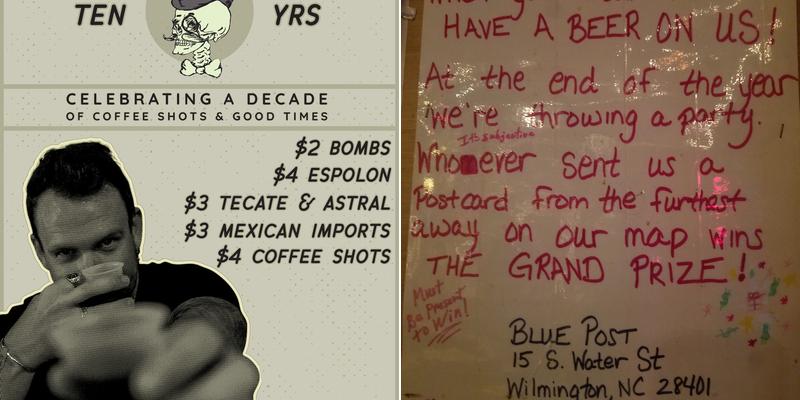 TEN YRS
CELEBRATING A DECADE
OF COFFEE SHOTS & GOOD TIMES
$2 BOMBS
$4 ESPOLON
$3 TECATE & ASTRAL
$3 MEXICAN IMPORTS
$4 COFFEE SHOTS
HAVE A BEER ON US!
At the end of the year
We're throwing a party.
It's subjective
Whoever sent us a
Postcard from the furthest
away on our map wins
THE GRAND PRIZE!
Must
Be Present
to Win!
BLUE POST
15 S. Water St
Wilmington, NC 28401